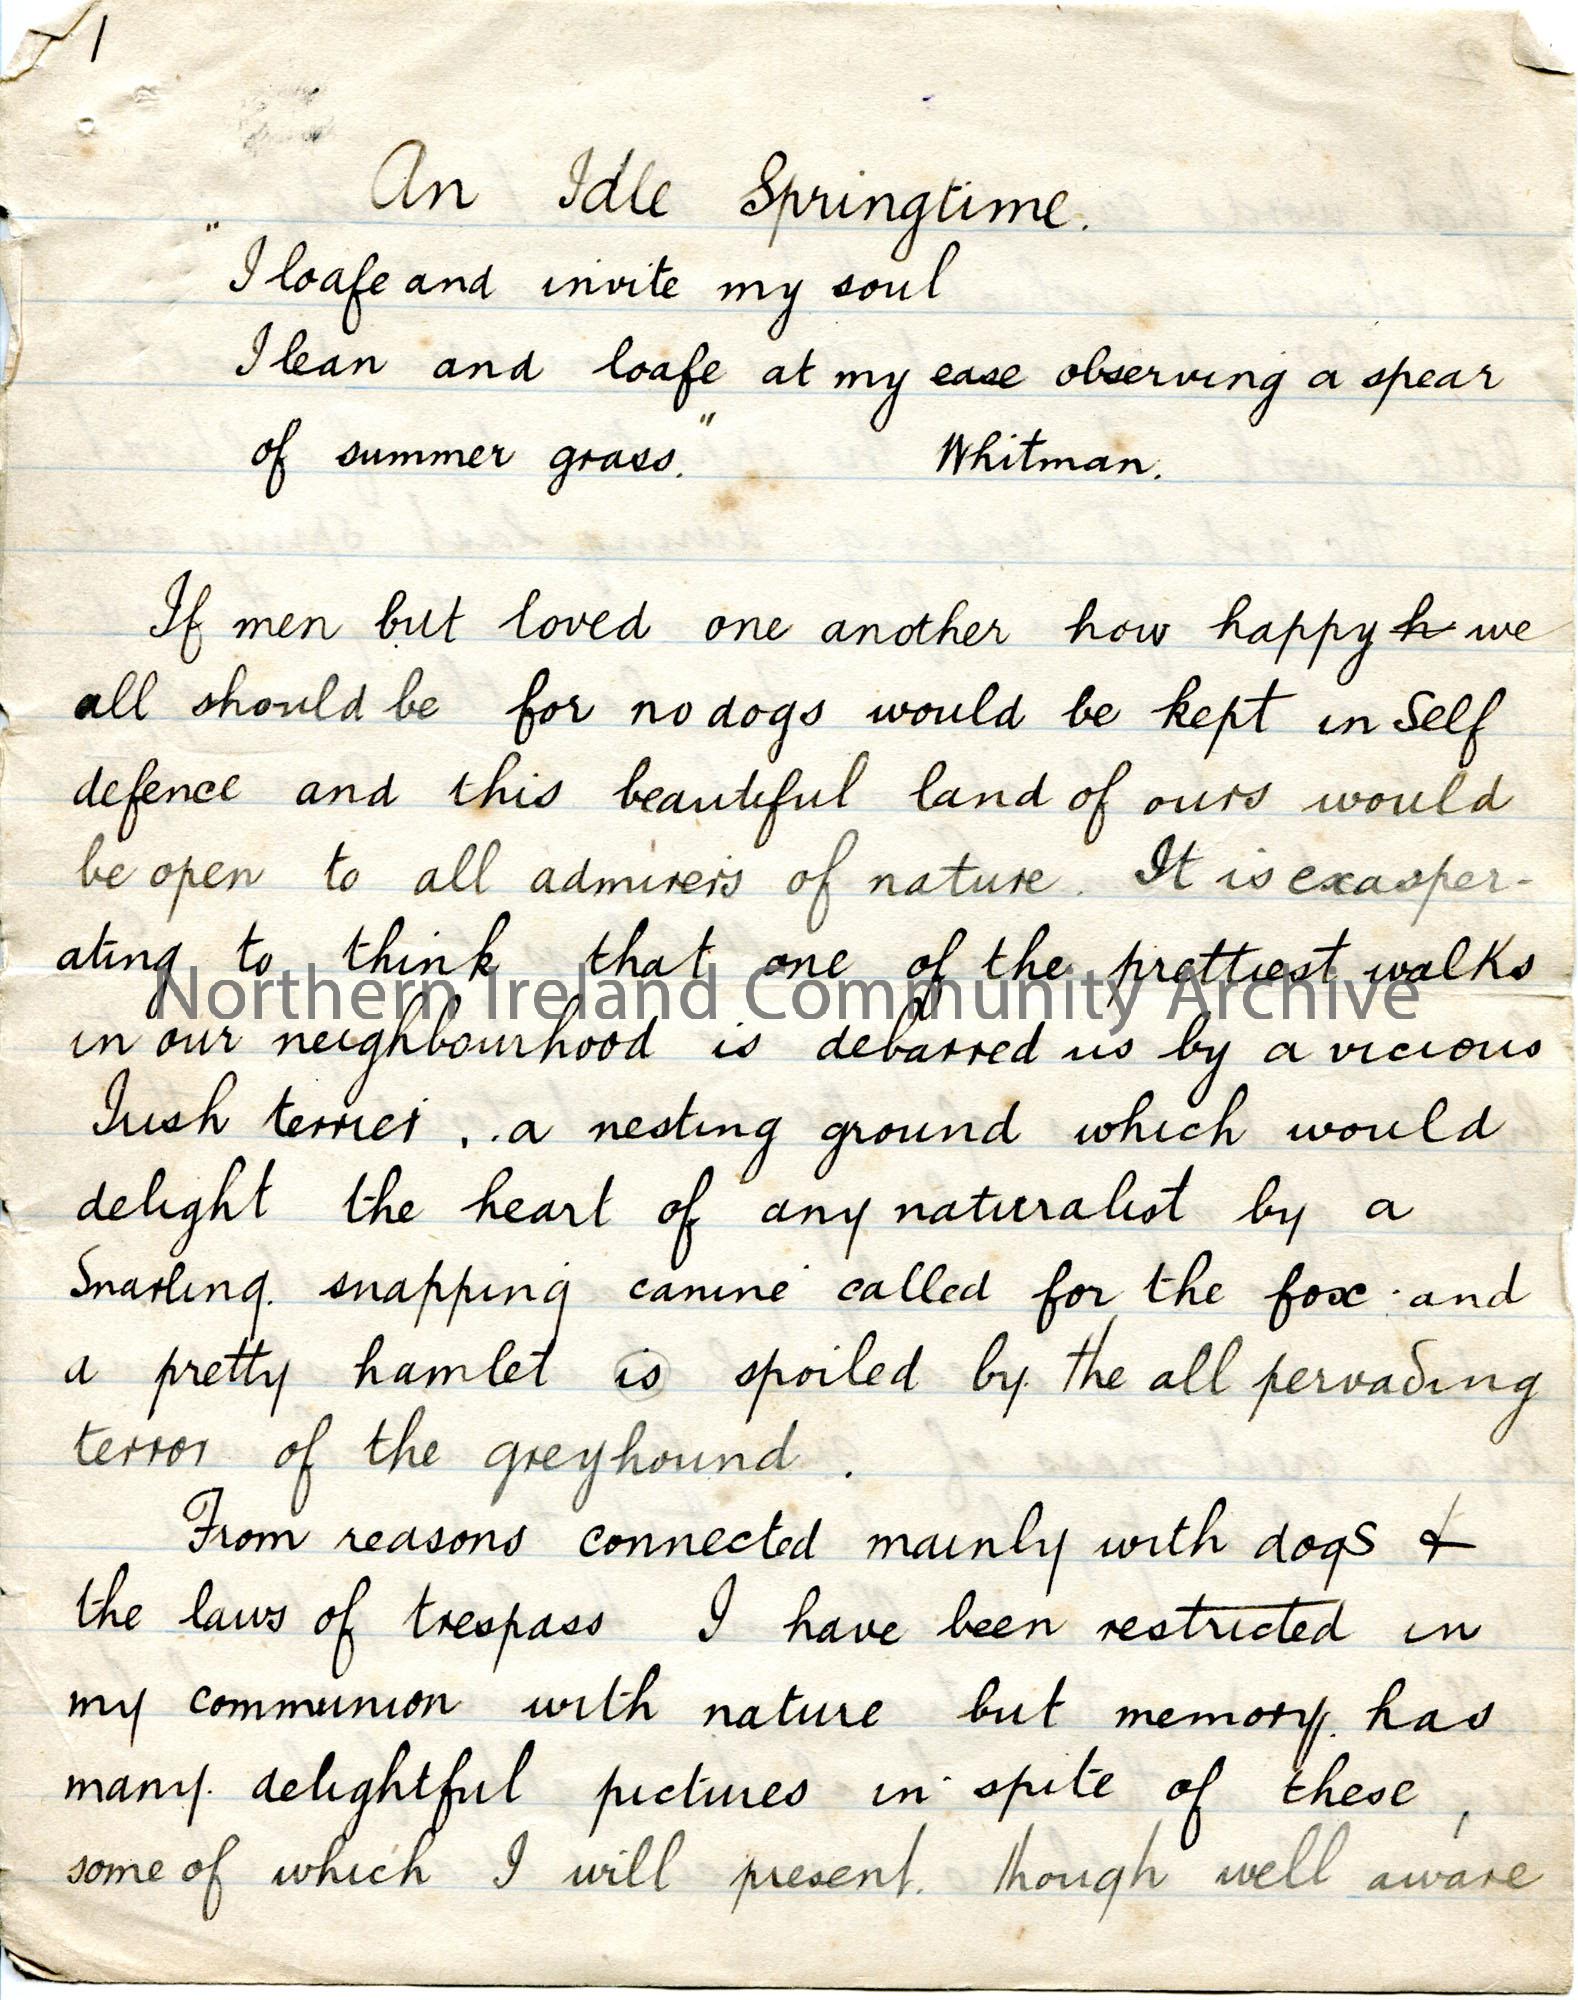 1
An Idle Springtime.
"I loafe and invite my soul
I lean and loafe at my ease observing a spear
of summer grass." Whitman.
If men but loved one another how happy h we
all should be for no dogs would be kept in Self
defence and this beautiful land of ours would
be open to all admirers of nature. It is exasper-
ating to think that one of the prettiest walks
Northern Ireland Community Archive
in our neighbourhood is debarred us by a vicious
Irish terrier, . a nesting ground which would
delight the heart of any naturalist by a
Snarling. snapping canine called for the fox and
a pretty hamlet is spoiled by the all pervading
terror of the greyhound.
From reasons connected mainly with dogs &
the laws of trespass I have been restricted in
my communion with nature but memory has
many delightful pictures in spite of these,
some of which I will present. though well aware